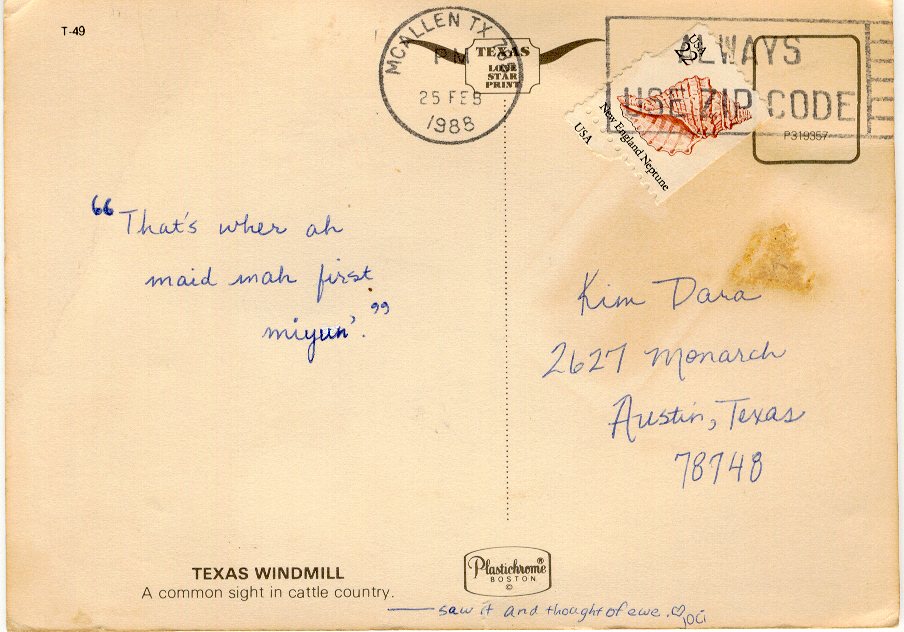 T-49
MCALLEN TX 785
PM
25 FEB
1988
TEXAS
LONE
STAR
PRINT
ALWAYS
USE ZIP CODE
USA
22
New England Neptune
USA
P319357
"That's wher ah
maid mah first
miyun'."
Kim Dara
2627 Monarch
Austin, Texas
78748
TEXAS WINDMILL
A common sight in cattle country.
Plastichrome®
BOSTON
©
— saw it and thought of ewe. ♡